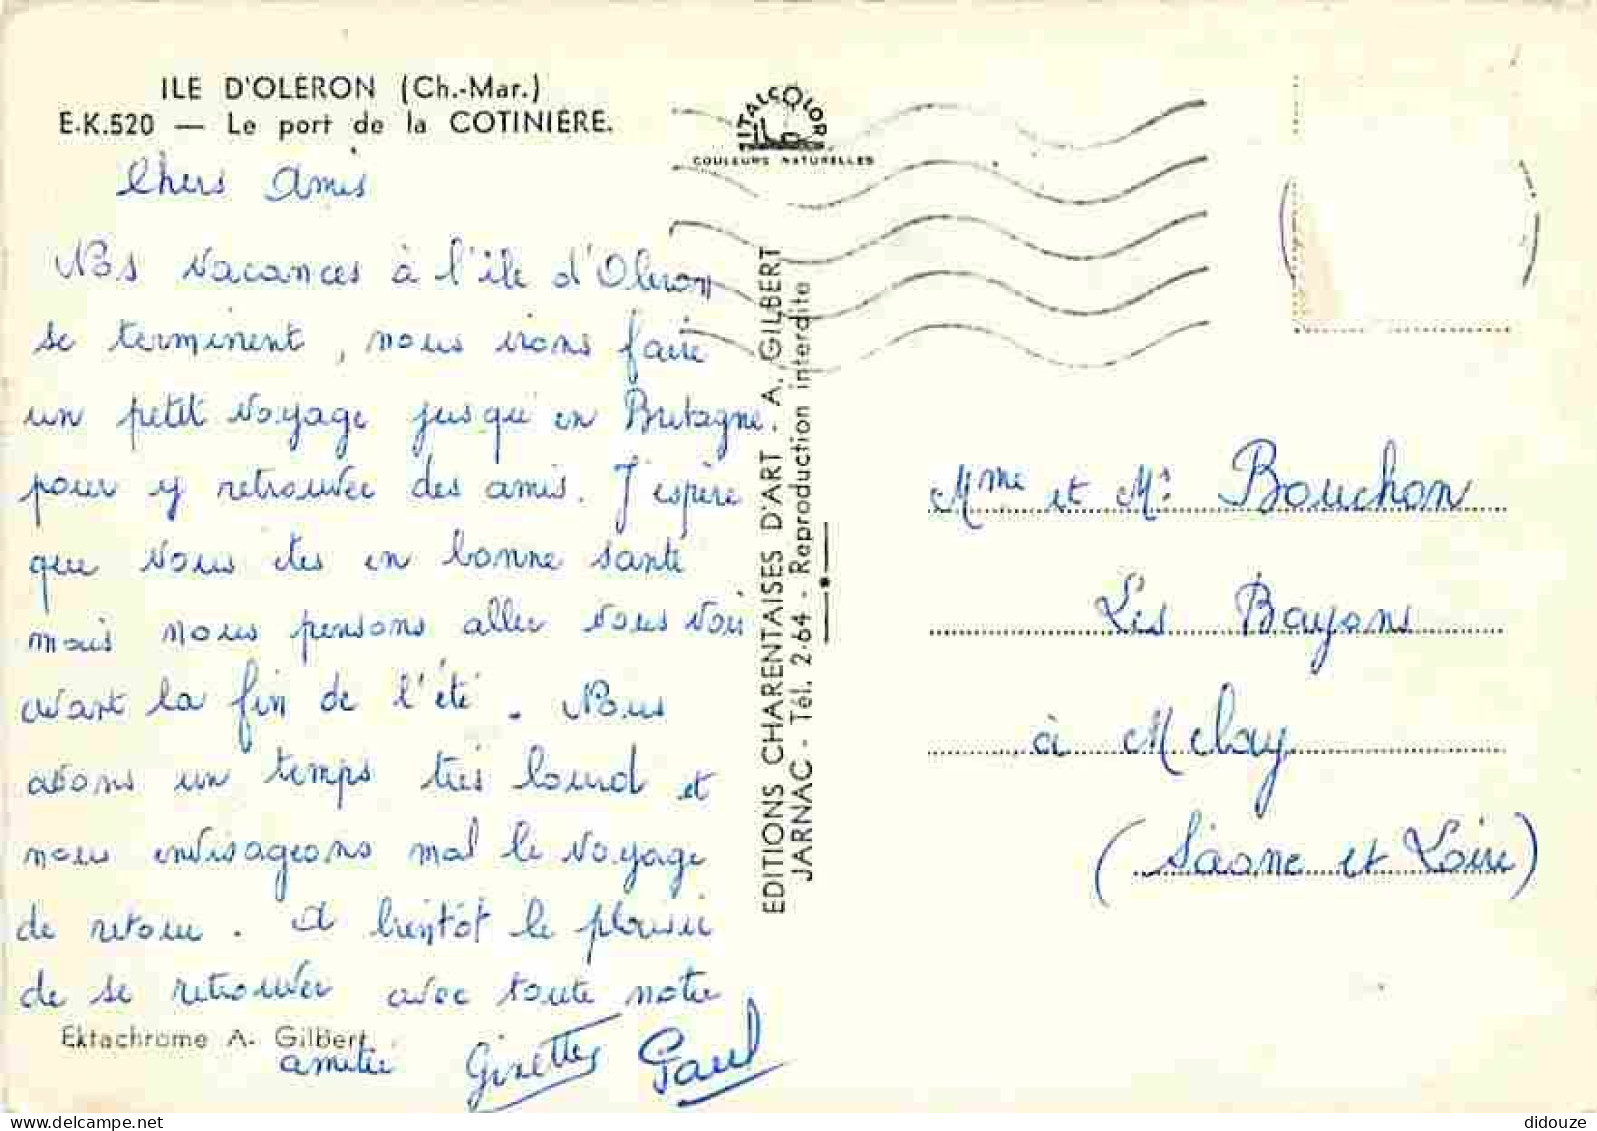 ILE D'OLERON (Ch.-Mar.)
E-K.520 — Le port de la COTINIERE.
ITALCOLOR
COULEURS NATURELLES
Chers Amis
Nos vacances à l'ile d'Oleron
se terminent, nous irons faire
un petit voyage jusqu'en Bretagne.
pour y retrouver des amis. J'espère
que vous etes en bonne santé
mais nous pensons aller vous voir
avant la fin de l'été. Nous
avons un temps très lourd et
nous envisageons mal le voyage
de retour. A bientôt le plaisir
de se retrouver avec toute notre
amitié Ginette Paul
Ektachrome A. Gilbert
EDITIONS CHARENTAISES D'ART A. GILBERT
JARNAC - Tél. 2-64 - Reproduction interdite
Mme et Mr Bouchon
Les Bayons
à Melay
(Saone et Loire)
didouze